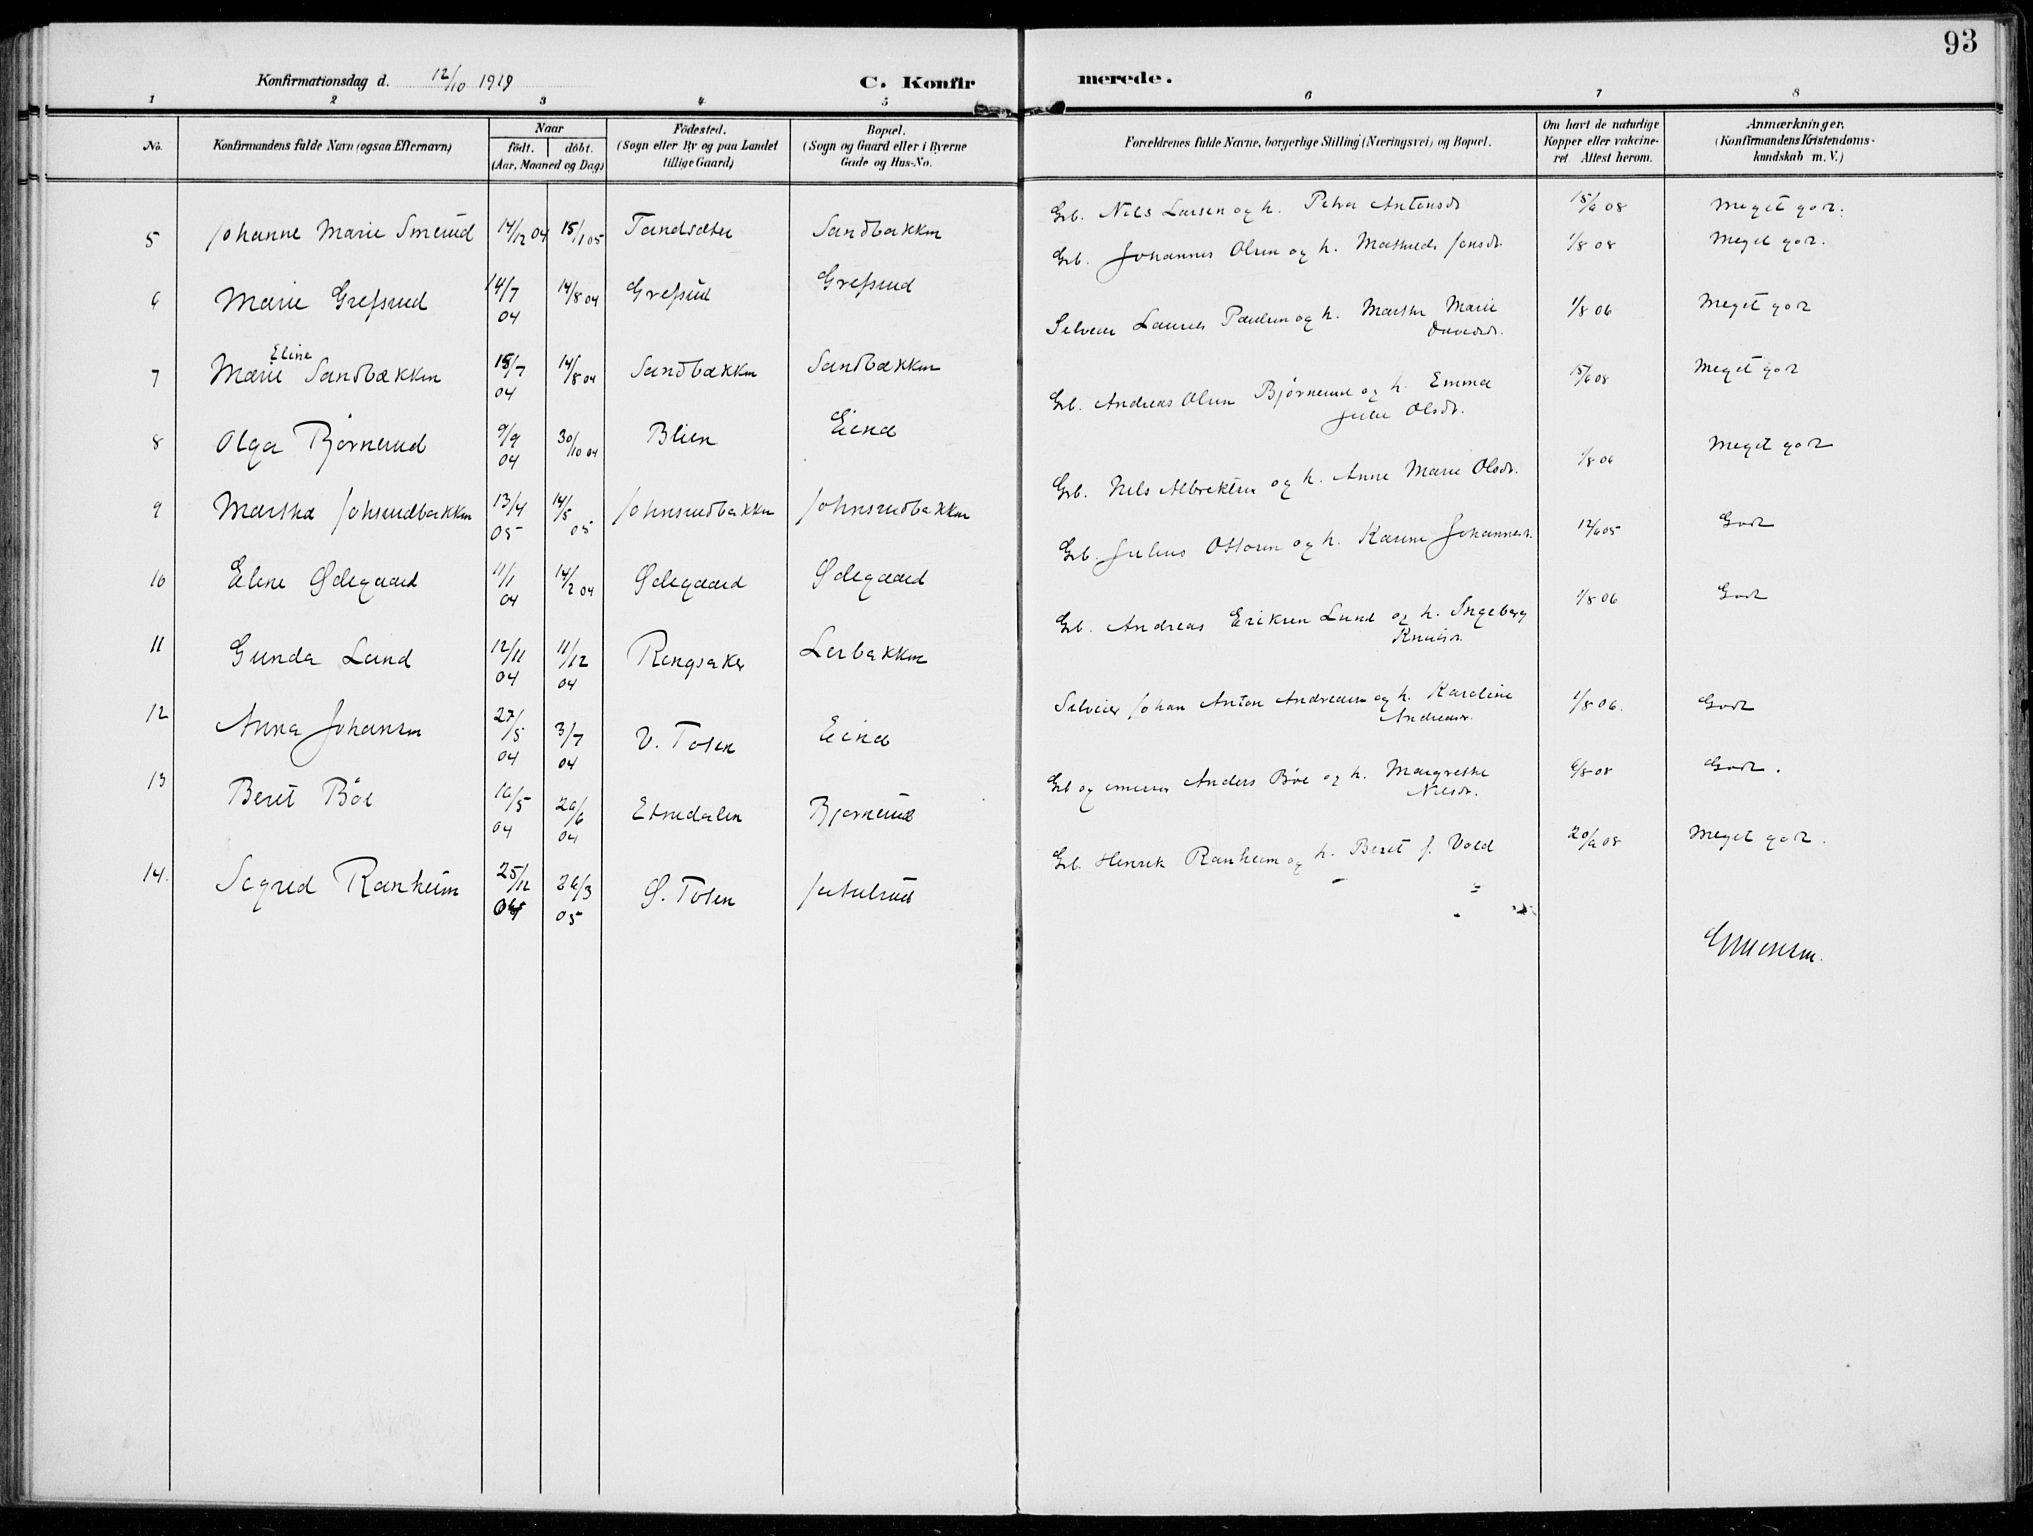 93
Konfirmationsdag d. 12/10 1919 C. Konfirmerede.
1 2 3 4 5 6 7 8
No. Konfirmandens fulde Navn (ogsaa Efternavn) Naar født. døbt. (Aar, Maaned og Dag) Fødested. (Sogn eller By og paa Landet tillige Gaard) Bopæl. (Sogn og Gaard eller i Byerne Gade og Hus-No. Forældrenes fulde Navne, borgerlige Stilling (Næringsvei) og Bopæl. Om havt de naturlige Kopper eller vakcineret Attest herom. Anmærkninger. (Konfirmandens Kristendomskundskab m. V.)
5 Johanne Marie Smerud 14/12 04 15/1 05 Sandbakken Grb. Nils Larsen og h. Petra Antonsdr 15/6 08 Meget god.
6 Marie Grefsrud 14/7 04 14/8 04 Grefsrud Grefsrud Grb. Johannes Olsen og h. Mathilde Jensdr. 1/8 08 Meget god.
7 Marie Eline Sandbækken 15/7 04 14/8 04 Sandbækken Sandbækken Selveier Laurits Paulsen og h. Marthe Marie Davidsdr. 1/8 06 Meget god
8 Olga Bjørnerud 9/9 04 30/10 04 Blien Eina Grb. Andreas Olsen Bjørnerud og h. Emma Julie Olsdr. 15/6 08 Meget god
9 Martha Johnsrudbakken 13/4 05 14/5 05 Johnsrudbakken Johnsrudbakken Grb. Nils Albrektsen og h. Anne Marie Olsdr. 1/8 06 Meget god
10 Eline Ødegaard 11/1 04 14/2 04 Ødegaard Ødegaard Grb. Julius Ottosen og h. Karine Johannesdr. 12/6 05 God
11 Gunda Lund 12/11 04 11/12 04 Ringsaker Lerbakken Grb. Andreas Eriksen Lund og h. Ingeborg Knudsdr. 1/8 06 God
12 Anna Johansen 27/5 04 3/7 04 V. Toten Eina Selveier Johan Anton Andreasen og h. Karoline Andreasdr. 1/8 06. God
13 Beret Bøe 16/5 04 26/6 04 Etnedalen Bjørnerud Grb og Anders Bøe og h. Margrethe Nilsdr. 6/8 08 God.
14. Sigrid Ranheim 25/12 04 26/3 05 Ø. Toten Grb. Henrik Ranheim og h. Beret J. Vold 20/6 08 Meget god.